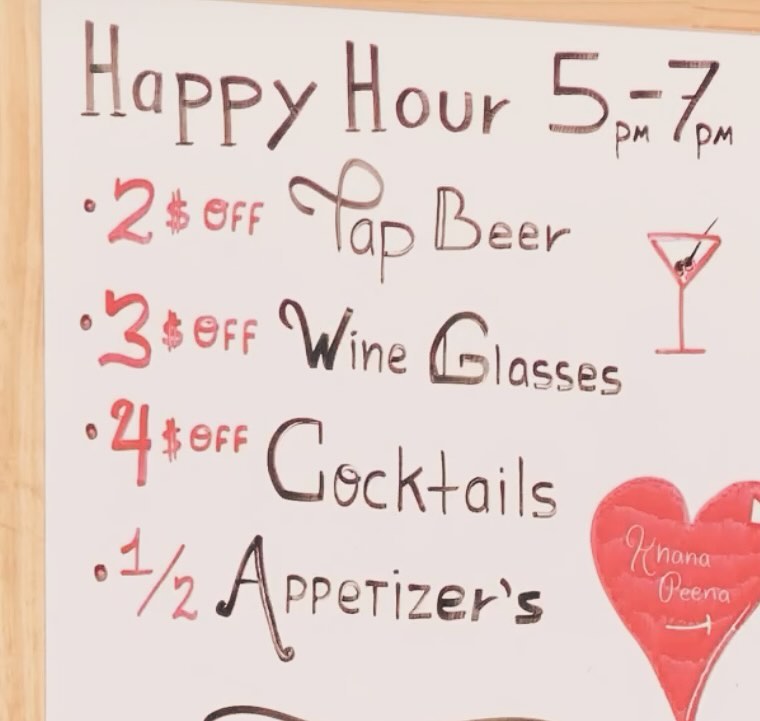 Happy Hour 5pm-7pm
• 2$ OFF Tap Beer
• 3$ OFF Wine Glasses
• 4$ OFF Cocktails
• 1/2 Appetizer's
Khana
Peena